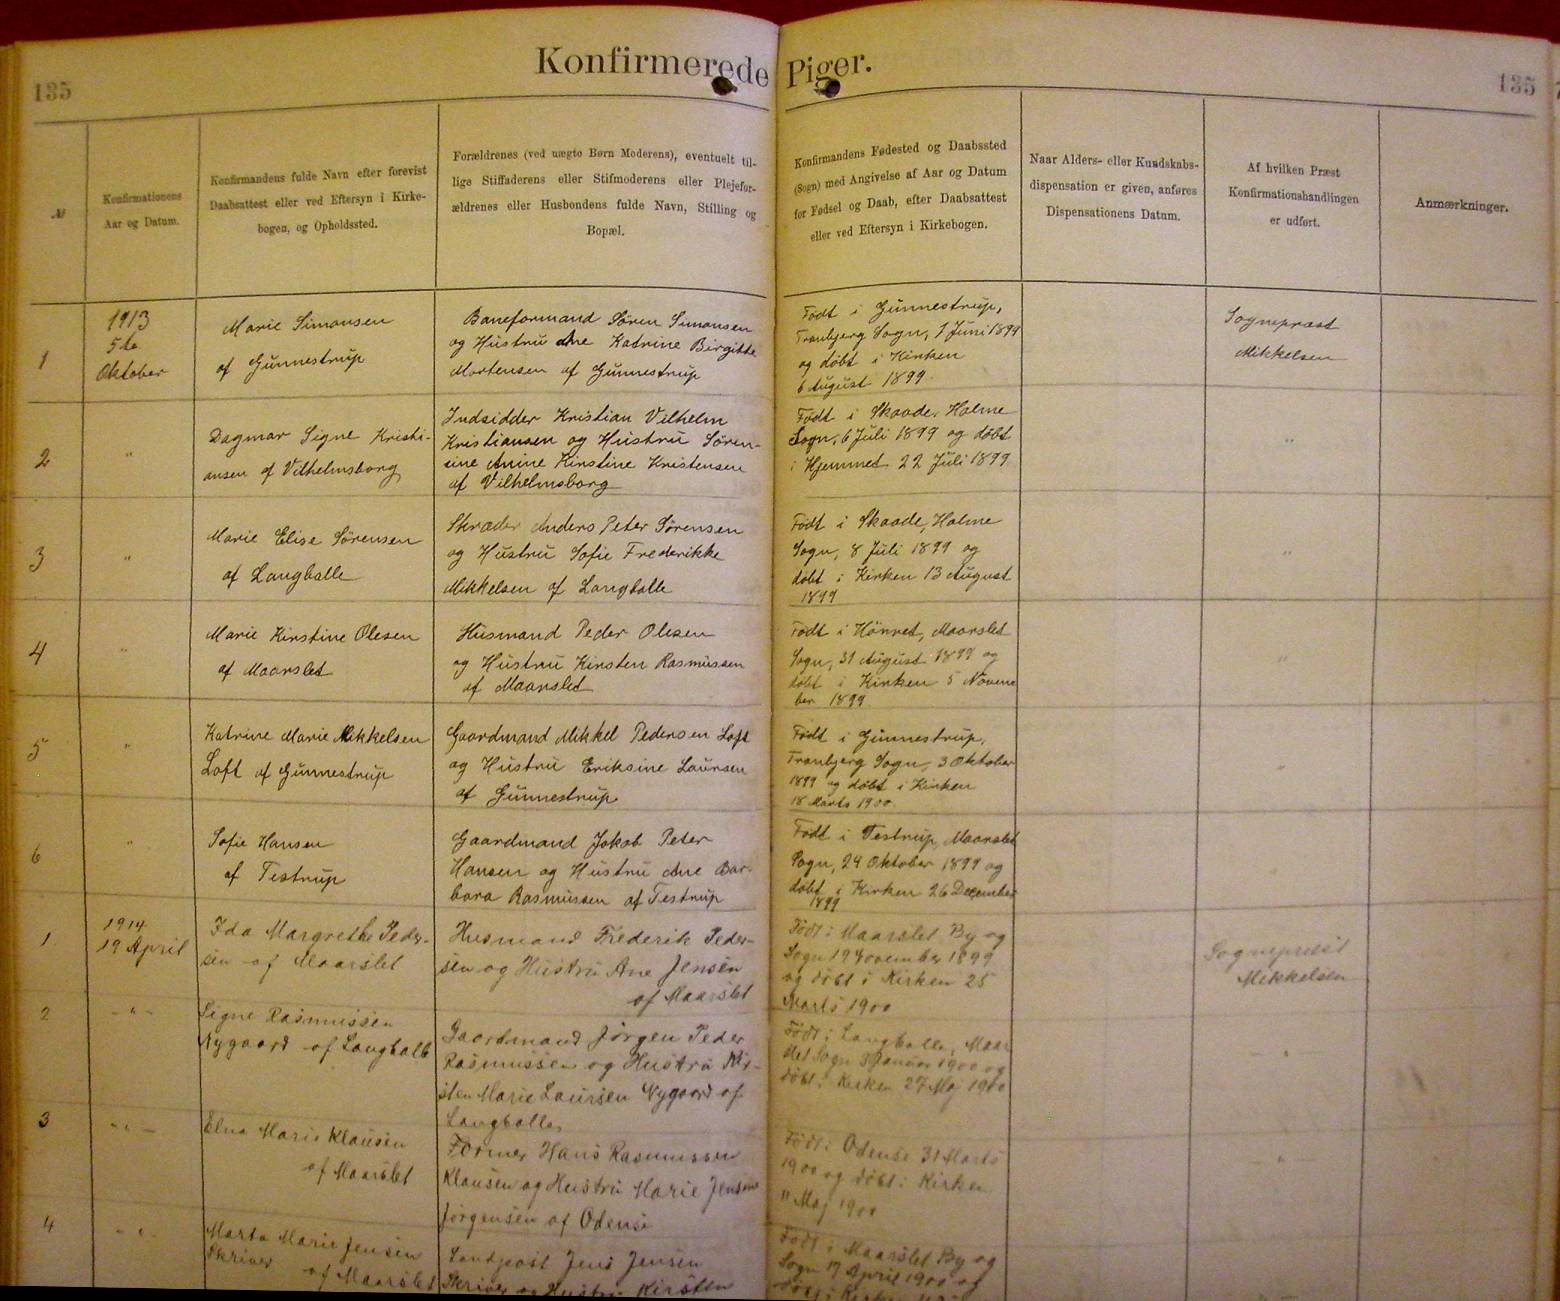 135
Konfirmerede Piger.
135
№
Konfirmationens
Aar og Datum.
Konfirmandens fulde Navn efter forevist
Daabsattest eller ved Eftersyn i Kirke-
bogen, og Opholdssted.
Forældrenes (ved uægte Børn Moderens), eventuelt til-
lige Stiffaderens eller Stifmoderens eller Plejefor-
ældrenes eller Husbondens fulde Navn, Stilling og
Bopæl.
Konfirmandens Fødested og Daabssted
(Sogn) med Angivelse af Aar og Datum
for Fødsel og Daab, efter Daabsattest
eller ved Eftersyn i Kirkebogen.
Naar Alders- eller Kundskabs-
dispensation er given, anføres
Dispensationens Datum.
Af hvilken Præst
Konfirmationshandlingen
er udført.
Anmærkninger.
1
1913
5te
Oktober
Marie Simonsen
af Gunnestrup
Baneformand Søren Simonsen
og Hustru Ane Katrine Birgitte
Mortensen af Gunnestrup
Født i Gunnestrup,
Tranbjerg Sogn, 1 Juni 1899
og døbt i Kirken
6 August 1899
Sognepræst
Mikkelsen
2
"
Dagmar Signe Kristi-
ansen af Vilhelmsborg
Indsidder Kristian Vilhelm
Kristiansen og Hustru Søren-
sine Anine Kirstine Kristensen
af Vilhelmsborg
Født i Skaade, Holme
Sogn, 6 Juli 1899 og døbt
i Hjemmet 22 Juli 1899
"
3
"
Marie Elise Sørensen
af Langballe
Skræder Anders Peter Sørensen
og Hustru Sofie Frederikke
Mikkelsen af Langballe
Født i Skaade, Holme
Sogn, 8 Juli 1899 og
døbt i Kirken 13 August
1899
"
4
"
Marie Kirstine Olesen
af Maarslet
Husmand Peder Olesen
og Hustru Kirsten Rasmussen
af Maarslet
Født i Hørret, Maarslet
Sogn, 31 August 1899 og
døbt i Kirken 5 Novem
ber 1899
"
5
"
Katrine Marie Mikkelsen
Loft af Gunnestrup
Gaardmand Mikkel Pedersen Loft
og Hustru Eriksine Laursen
af Gunnestrup
Født i Gunnestrup,
Tranbjerg Sogn, 3 Oktober
1899 og døbt i Kirken
18 Marts 1900
"
6
"
Sofie Hansen
af Testrup
Gaardmand Jakob Peter
Hansen og Hustru Ane Bar-
bara Rasmussen af Testrup
Født i Testrup, Maarslet
Sogn, 24 Oktober 1899 og
døbt i Kirken 26 December
1899
"
1
1914
19 April
Ida Margrethe Peder-
sen af Maarslet
Husmand Frederik Peder-
sen og Hustru Ane Jensen
af Maarslet
Født i Maarslet By og
Sogn 19 November 1899
og døbt i Kirken 25
Marts 1900
Sognepræst
Mikkelsen
2
- " -
Signe Rasmussen
Nygaard af Langballe
Gaardmand Jørgen Peder
Rasmussen og Hustru Kir-
sten Marie Laursen Nygaard af
Langballe
Født i Langballe, Maar
slet Sogn Januar 1900 og
døbt i Kirken 27 Maj 1900
- " -
3
- " -
Elna Marie Klausen
af Maarslet
Former Hans Rasmussen
Klausen og Hustru Marie Jensine
Jørgensen af Odense
Født i Odense 31 Marts
1900 og døbt i Kirken
11 Maj 1900
- " -
4
- " -
Marta Marie Jensen
Skriver af Maarslet
Landpost Jens Jensen
Skriver og Hustru Kirsten
Født i Maarslet By og
Sogn 17 April 1900 og
døbt i Kirken